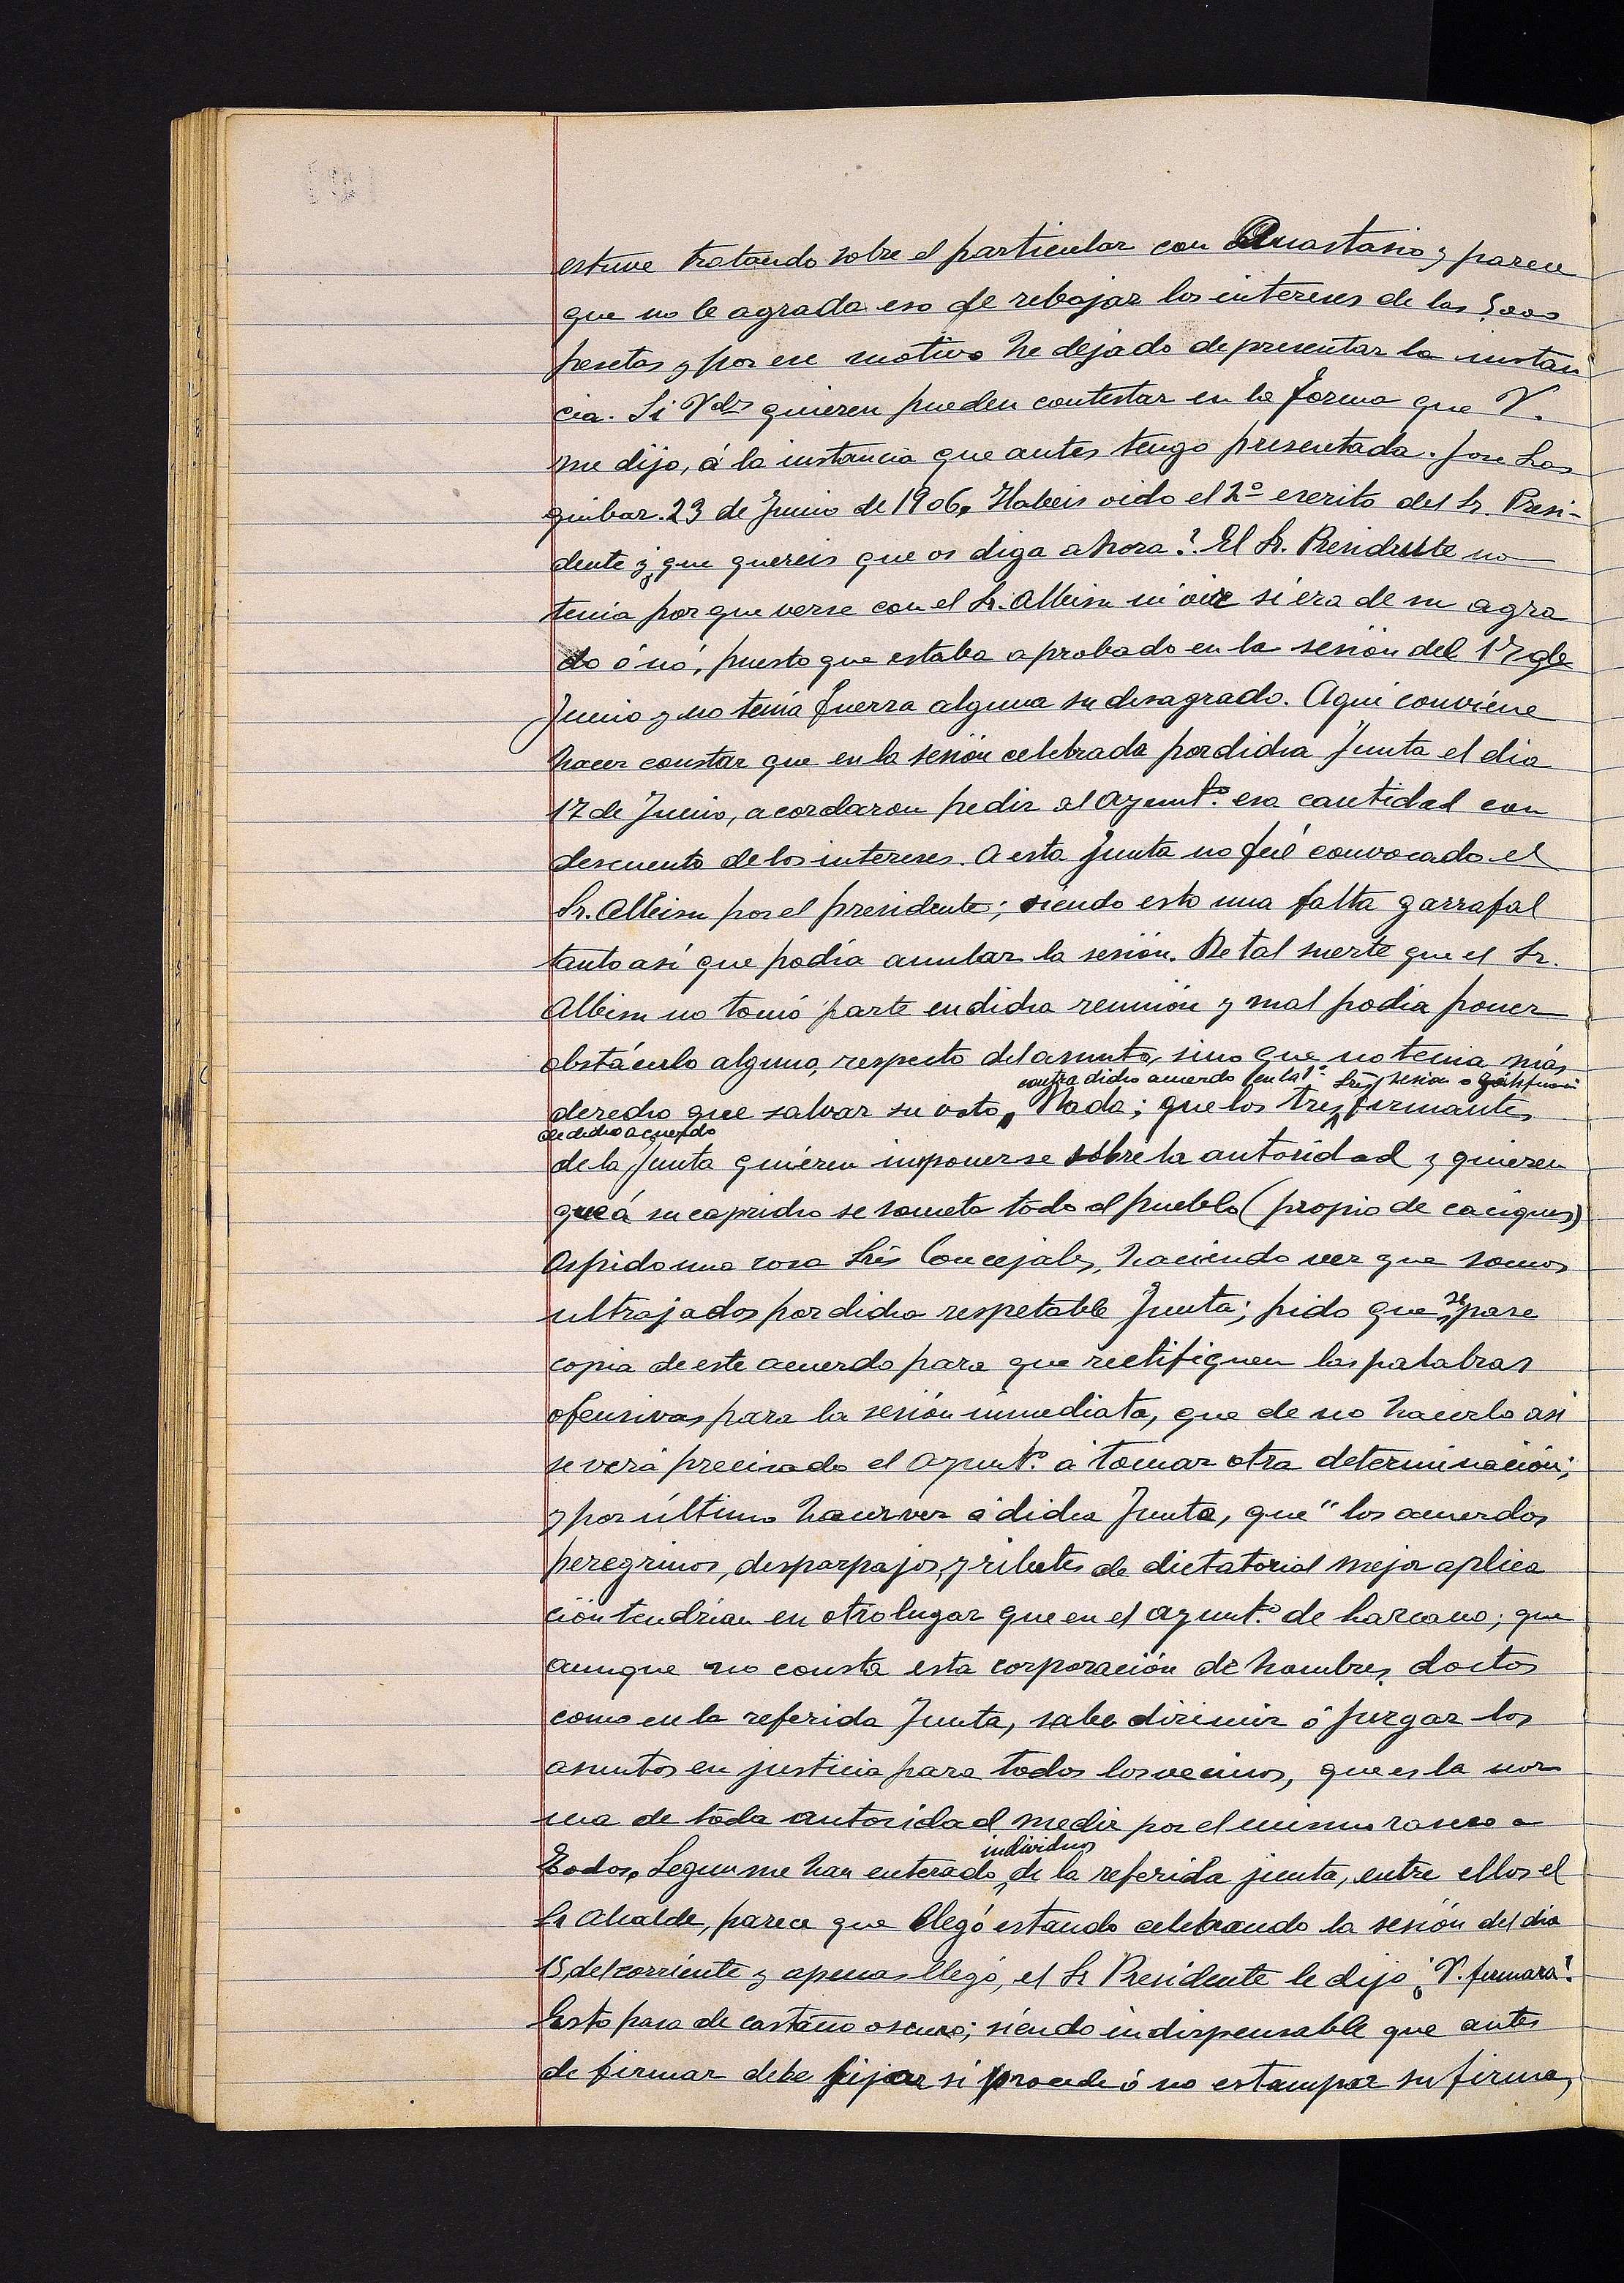 estuve tratando sobre el particular con Anastasio y parece
que no le agrada eso de rebajar los intereses de las 5000
pesetas y por ese motivo he dejado de presentar la instan
cia. Si Vds quieren pueden contestar en la forma que V.
me dijo, á la instancia que antes tengo presentada. Jose Las
quibar. 23 de Junio de 1906. Habeis oido el 2º escrito del Sr. Presi-
dente y ¿que quereis que os diga ahora? El Sr. Presidente no
tenia por que verse con el Sr. Albisu ni oir si era de su agra
do ó nó, puesto que estaba aprobado en la sesión del 17 de
Junio y no tenía fuerza alguna su desagrado. Aqui conviene
hacer constar que en la sesión celebrada por dicha Junta el dia
17 de Junio, acordaron pedir al Ayunt.º esa cantidad con
descuento de los intereses. A esta Junta no fué convocado el
Sr. Albisu por el presidente; siendo esto una falta garrafal
tanto así que podía anular la sesión. De tal suerte que el Sr.
Albisu no tomó parte en dicha reunión y mal podía poner
obstáculo alguno, respecto del asunto, sino que no tenia más
contra dicho acuerdo en la 1ª sesion
derecho que salvar su voto. Nada; que los tres firmantes
de dicho acuerdo
de la Junta quieren imponerse sobre la autoridad y quieren
que á su capricho se someta todo el pueblo (propio de caciques)
Os pido una cosa Srs Concejales, haciendo ver que somos
ultrajados por dicha respetable Junta; pido que se pase
copia de este acuerdo para que rectifiquen las palabras
ofensivas para la sesión inmediata, que de no hacerlo asi
se verá precisado el Ayunt.º á tomar otra determinación;
y por último hacer ver á dicha Junta, que "los acuerdos
peregrinos, desparpajos y ribetes de dictatorial mejor aplica
ción tendrían en otro lugar que en el Ayunt.º de Lazcano; que
aunque no consta esta corporación de hombres doctos
como en la referida Junta, sabe dirimir ó juzgar los
asuntos en justicia para todos los vecinos, que es la nor
ma de toda autoridad medir por el mismo rasero a
individuos
todos. Segun me han enterado de la referida junta, entre ellos el
Sr Alcalde, parece que llegó estando celebrando la sesión del dia
15 del corriente y apenas llegó, el Sr Presidente le dijo ¿V. firmará?
Esto pasa de castaño oscuro; siendo indispensable que antes
de firmar debe fijar si procede ó no estampar su firma,